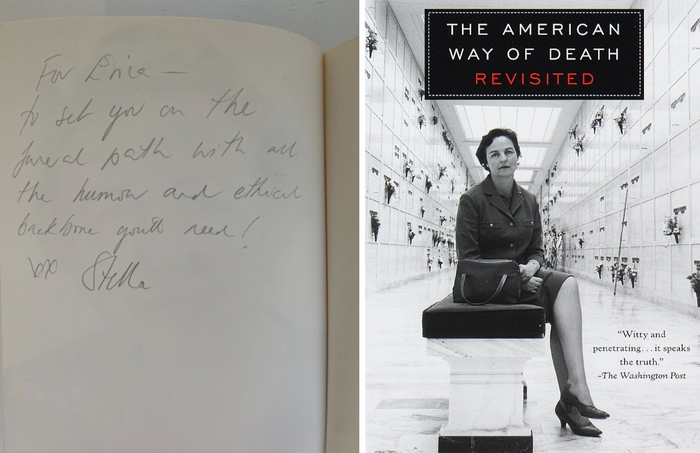 For Erica —
to set you on the
funeral path with all
the humour and ethical
backbone you'll need!
xox Stella
THE AMERICAN
WAY OF DEATH
REVISITED
"Witty and
penetrating...it speaks
the truth."
-The Washington Post